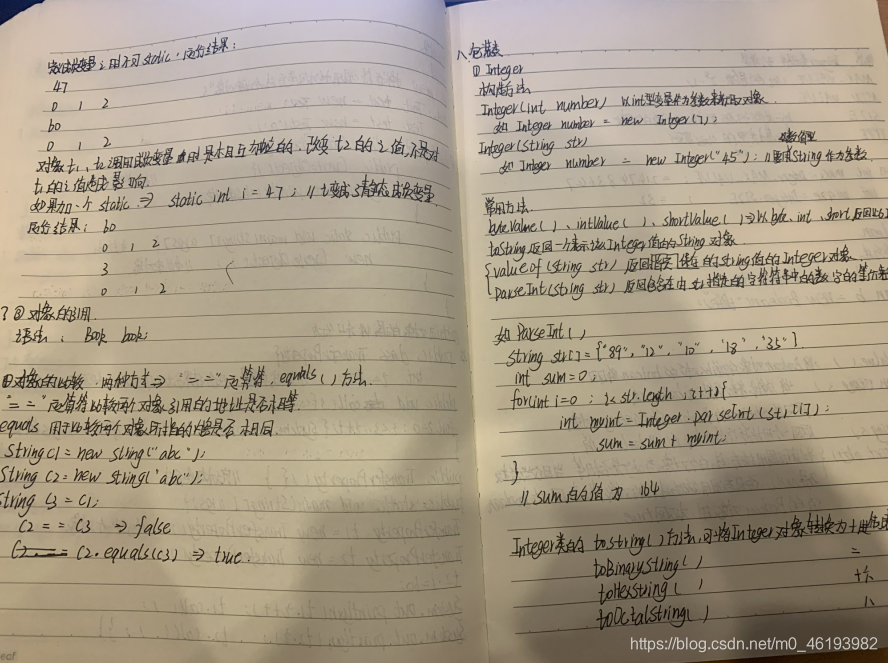 定义成员变量i时不可static，运行结果：
47
0 1 2
60
0 1 2
对象t1、t2调用成员变量时是相互独立的，改变t2的i值，不会对
t1的i值造成影响.
如果加个static ⇒ static int i = 47; // i变成了静态成员变量
运行结果：60
0 1 2
3
0 1 2
? ② 对象的引用
语法： Book book;
对象的比较：两种方式⇒ "= =" 运算符，equals()方法
"= =" 运算符比较两个对象引用的地址是否相等
equals 用于比较两个对象所指的内容是否相同
String C1=new string("abc");
String C2=new string("abc");
String C3 = C1;
C2 = = C3 ⇒ false
C2.equals(C3) ⇒ true.
八、包装类
① Integer
构造方法
Integer(int number) 以int型变量作为参数来获取对象.
如 Integer number = new Integer(7);
Integer(String str)
数值型
如 Integer number = new Integer("45"); //要用String作为参数
常用方法
byteValue()、intValue()、shortValue() ⇒以byte、int、short返回此
toString 返回一个表示该Integer值的String 对象.
{ valueof(string str) 返回指定的String值的Integer对象.
parseInt(string str) 返回包含在由str指定的字符串中的数字的等价
如 ParseInt()
String str[] = {"89", "12", "10", "18", "35"}
int sum=0
for(int i=0 ; i<str.length ; i++){
int myint = Integer.parseInt(str[i]);
sum = sum + myint;
}
// sum的值为 164
Integer类的 toString()方法,可将Integer对象转换为十进制
toBinaryString() 二
toHexString() 十六
toOctalString() 八
https://blog.csdn.net/m0_46193982